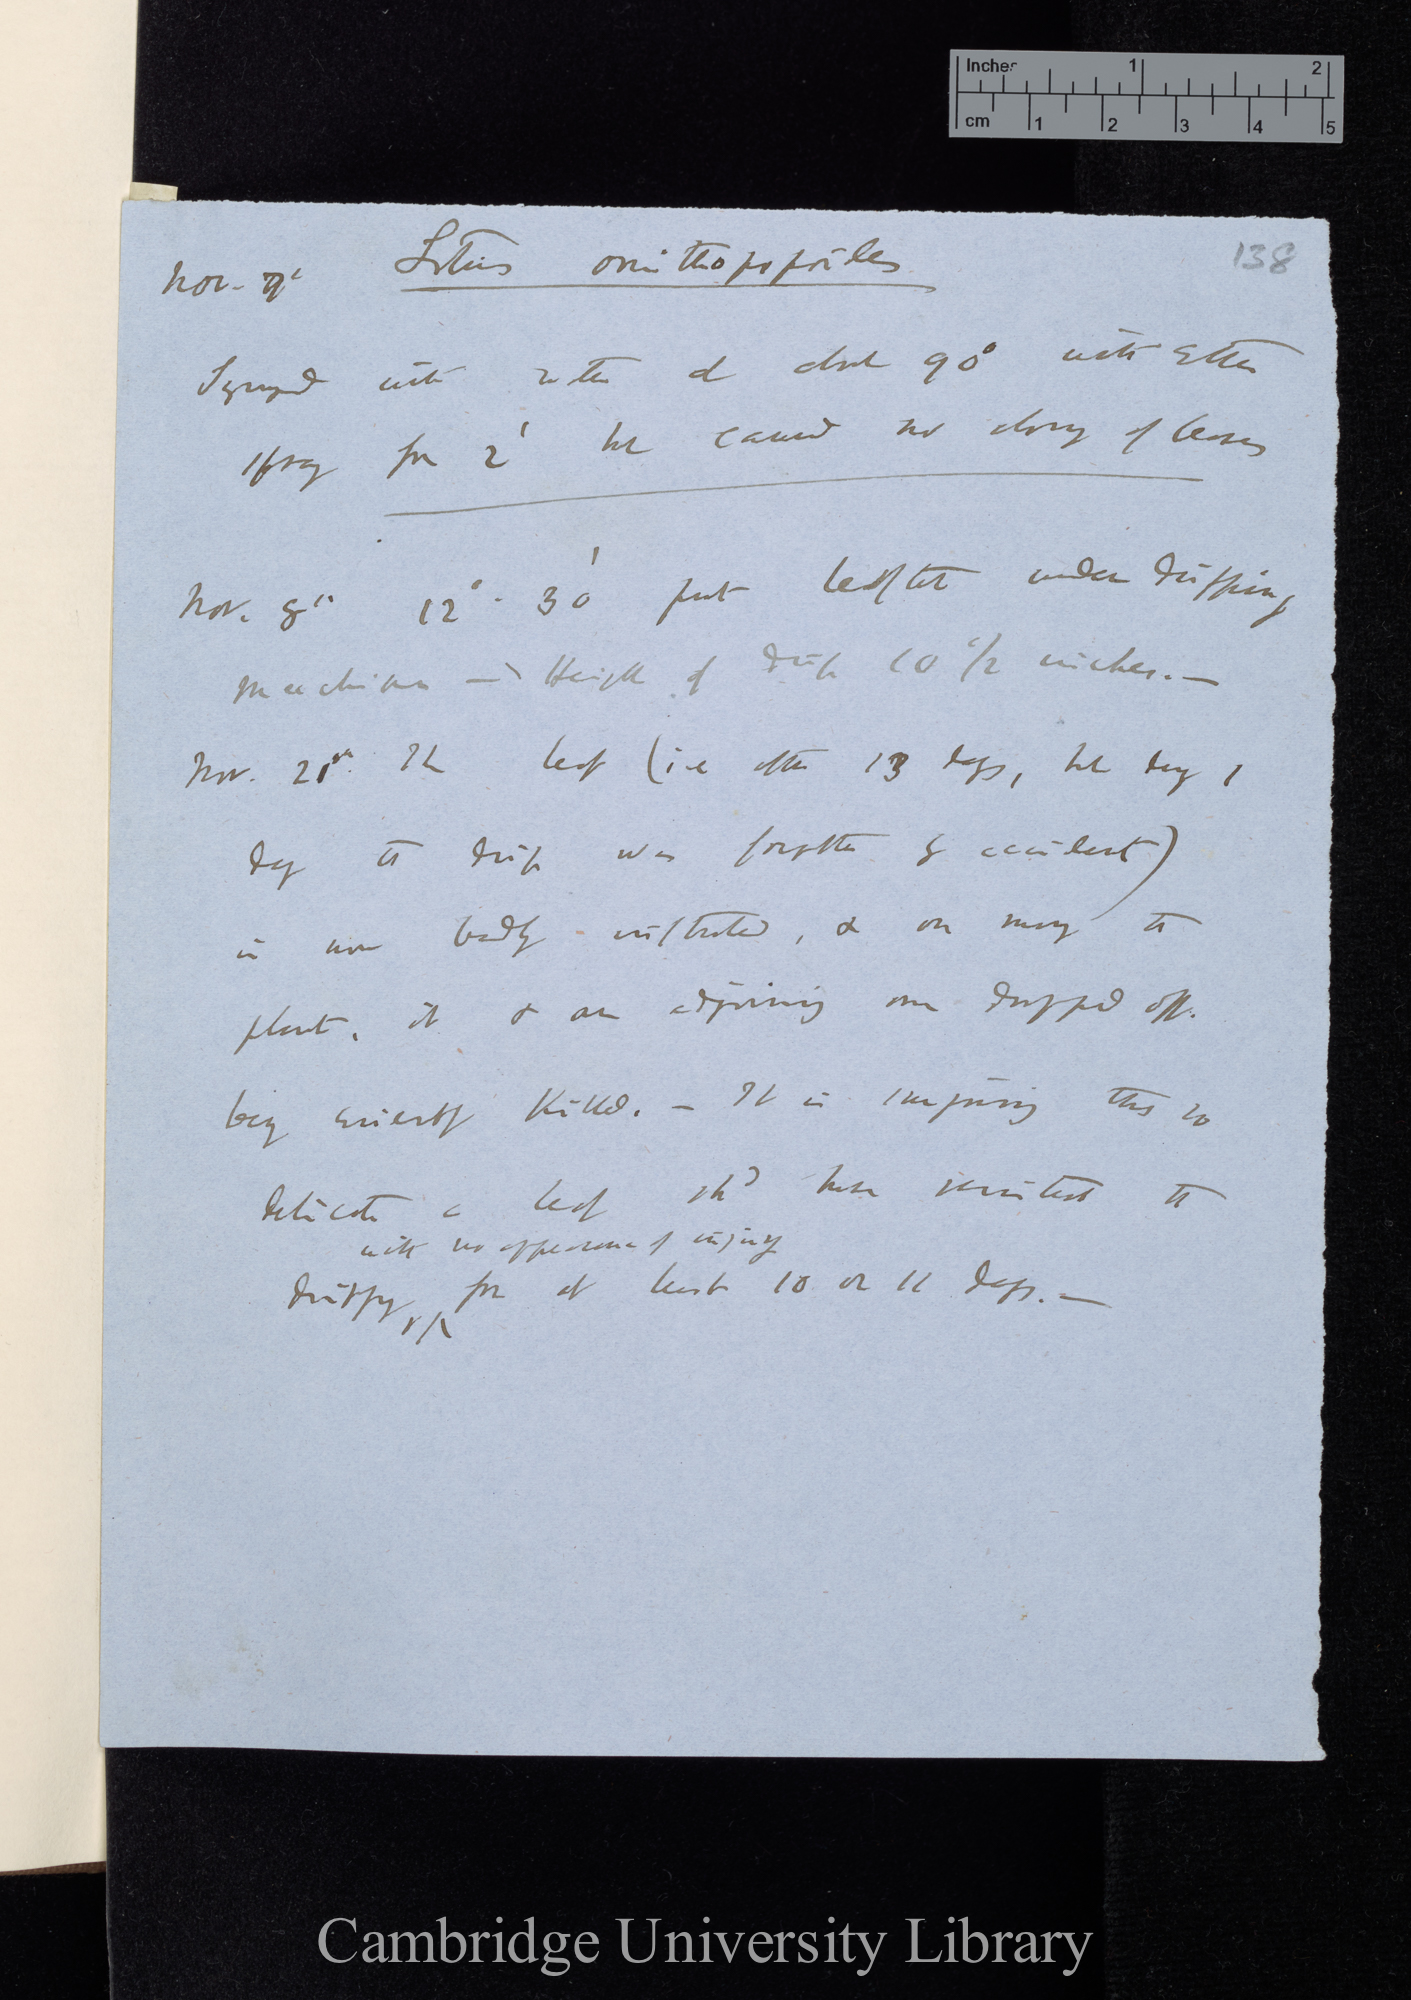 Inches 1 2
cm 1 2 3 4 5
138
Nov. 7' Lotus ornithopopoides
Syringed with water at about 90° with Etter
spray for 2' but caused no closing of leaves
Nov. 8th 12° . 30' put leaflet under dripping
machine — Height of drip 10 1/2 inches. —
Nov. 21st The leaf (i.e. after 13 days, but 1
day the drip was forgotten by accident)
is now badly , & on moving the
plant, it & an adjoining one dropped off.
being evidently killed. — It is surprising that so
delicate a leaf shd have resisted the
with no appearance of injury
dripping for at least 10 or 11 days. —
Cambridge University Library